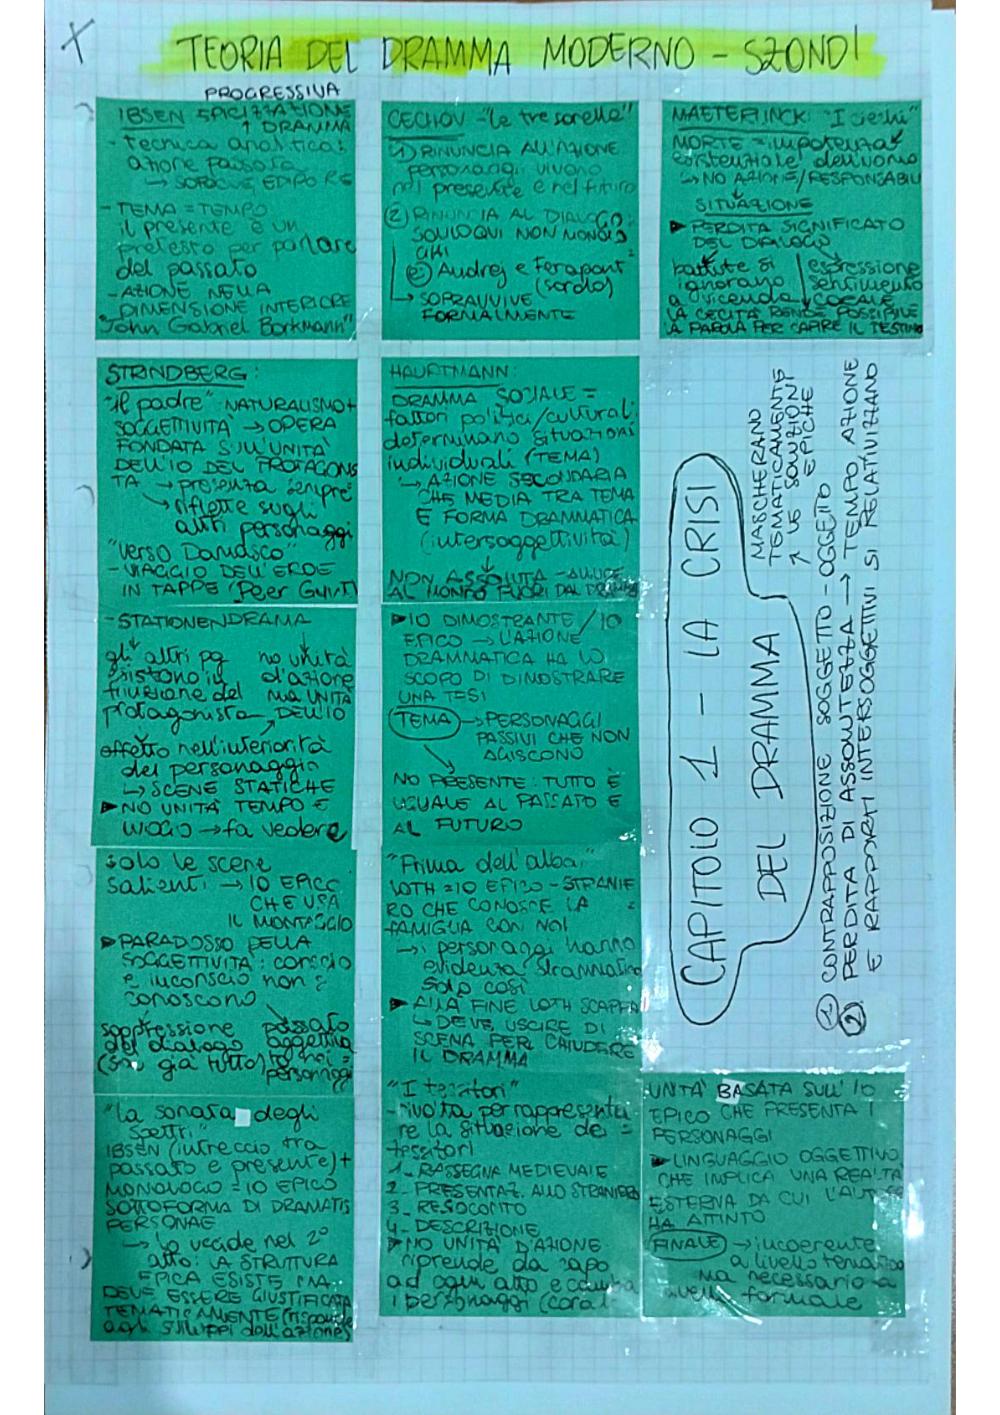 TEORIA DEL DRAMMA MODERNO - SZONDI
PROGRESSIVA
IBSEN EPICIZZAZIONE
↑ DRAMMA
- tecnica analitica:
azione passata
→ SOFOCLE EDIPO RE
- TEMA = TEMPO
il presente è un
pretesto per parlare
del passato
- AZIONE NELLA
DIMENSIONE INTERIORE
"John Gabriel Borkmann"
STRINDBERG:
"Il padre": NATURALISMO +
SOGGETTIVITÀ → OPERA
FONDATA SULL'UNITÀ
DELL'IO DEL PROTAGONIS
TA → presenza sempre
→ riflette sugli
altri personaggi
"Verso Damasco"
- VIAGGIO DELL'EROE
IN TAPPE (Peer Gynt)
- STATIONENDRAMA
gli altri pg no unità
esistono in d'azione
funzione del ma UNITÀ
protagonista DELL'IO
effetto nell'interiorità
del personaggio
↳ SCENE STATICHE
▶ NO UNITÀ TEMPO E
LUOGO → fa vedere
solo le scene
salienti → IO EPICO
CHE USA
IL MONTAGGIO
▶ PARADOSSO DELLA
SOGGETTIVITÀ: conscio
e inconscio non si
conoscono
soppressione passato
del dialogo oggettiva
(sai già tutto) to nei =
personaggi
"La sonata degli
spettri"
IBSEN (intreccio tra
passato e presente) +
MONOLOGO = IO EPICO
SOTTOFORMA DI DRAMATIS
PERSONAE
→ lo uccide nel 2°
atto: LA STRUTTURA
EPICA ESISTE MA
DEVE ESSERE GIUSTIFICATA
TEMATICAMENTE (risponde
agli sviluppi dell'azione)
CECHOV "Le tre sorelle"
① RINUNCIA ALL'AZIONE
personaggi vivono
nel presente e nel futuro
② RINUNCIA AL DIALOGO:
SOLILOQUI NON MONOLO
GHI
es Audrej e Ferapont
(sordo)
↳ SOPRAVVIVE
FORMALMENTE
HAUPTMANN:
DRAMMA SOCIALE =
fattori politici/culturali
determinano situazioni
individuali (TEMA)
↳ AZIONE SECONDARIA
CHE MEDIA TRA TEMA
E FORMA DRAMMATICA
(intersoggettività)
NON ASSOLUTA - ALLUDE
AL MONDO FUORI DAL DRAMMA
▶ IO DIMOSTRANTE / IO
EPICO → L'AZIONE
DRAMMATICA HA LO
SCOPO DI DIMOSTRARE
UNA TESI
TEMA → PERSONAGGI
PASSIVI CHE NON
AGISCONO
NO PRESENTE: TUTTO È
UGUALE AL PASSATO E
AL FUTURO
"Prima dell'alba"
LOTH = IO EPICO - STRANIE
RO CHE CONOSCE LA =
FAMIGLIA CON NOI
→ i personaggi hanno
evidenza drammatica
solo così
▶ ALLA FINE LOTH SCAPPA
↳ DEVE USCIRE DI
SCENA PER CHIUDERE
IL DRAMMA
"I tessitori"
- rivolta per rappresenta
re la situazione dei =
tessitori
1- RASSEGNA MEDIEVALE
2- PRESENTAZ. ALLO STRANIERO
3- RESOCONTO
4- DESCRIZIONE
▶ NO UNITÀ D'AZIONE
riprende da capo
ad ogni atto e cambia
i personaggi (coral
MAETERLINCK: "I ciechi"
MORTE = impotenza
esistenziale dell'uomo
↳ NO AZIONE/RESPONSABILI
SITUAZIONE
▶ PERDITA SIGNIFICATO
DEL DIALOGO
battute si espressione
ignorano sentimento
a vicenda CORALE
LA CECITÀ RENDE POSSIBILE
LA PAROLA PER CAPIRE IL DESTINO
CAPITOLO 1 - LA CRISI
DEL DRAMMA
MASCHERANO
TEMATICAMENTE
↗ LE SOLUZIONI
EPICHE
① CONTRAPPOSIZIONE SOGGETTO - OGGETTO
② PERDITA DI ASSOLUTEZZA → TEMPO AZIONE
E RAPPORTI INTERSOGGETTIVI SI RELATIVIZZANO
UNITÀ BASATA SULL'IO
EPICO CHE PRESENTA I
PERSONAGGI
▶ LINGUAGGIO OGGETTIVO
CHE IMPLICA UNA REALTÀ
ESTERNA DA CUI L'AUTORE
HA ATTINTO
FINALE → incoerente
a livello tematico
ma necessario a
livello formale